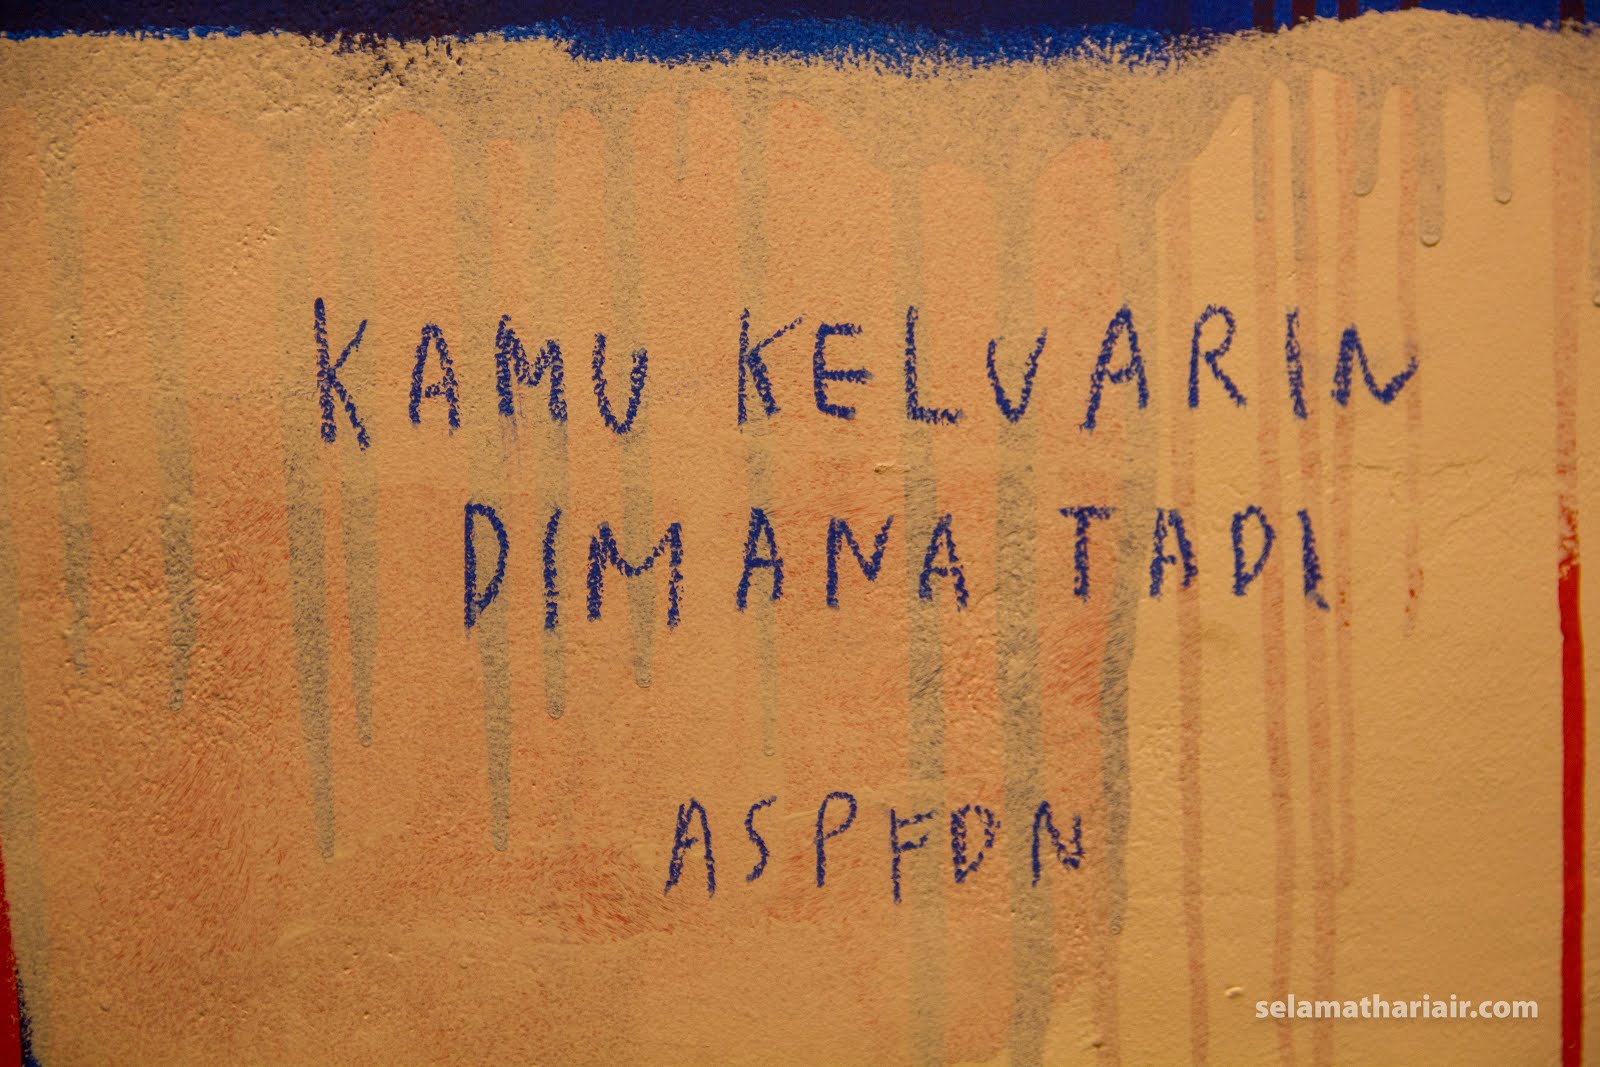 KAMU KELUARIN
DIMANA TADI
ASPFDN
selamathariair.com